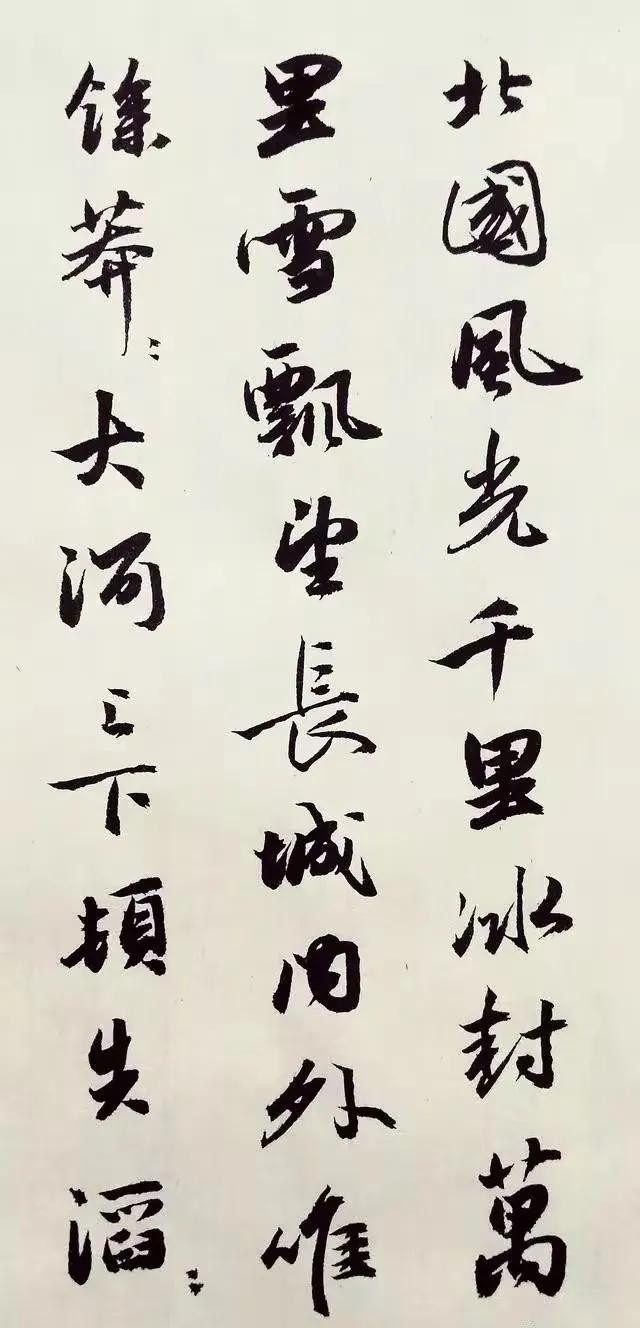 北國風光千里冰封萬
里雪飄望長城内外唯
餘莽〻大河上下頓失滔〻